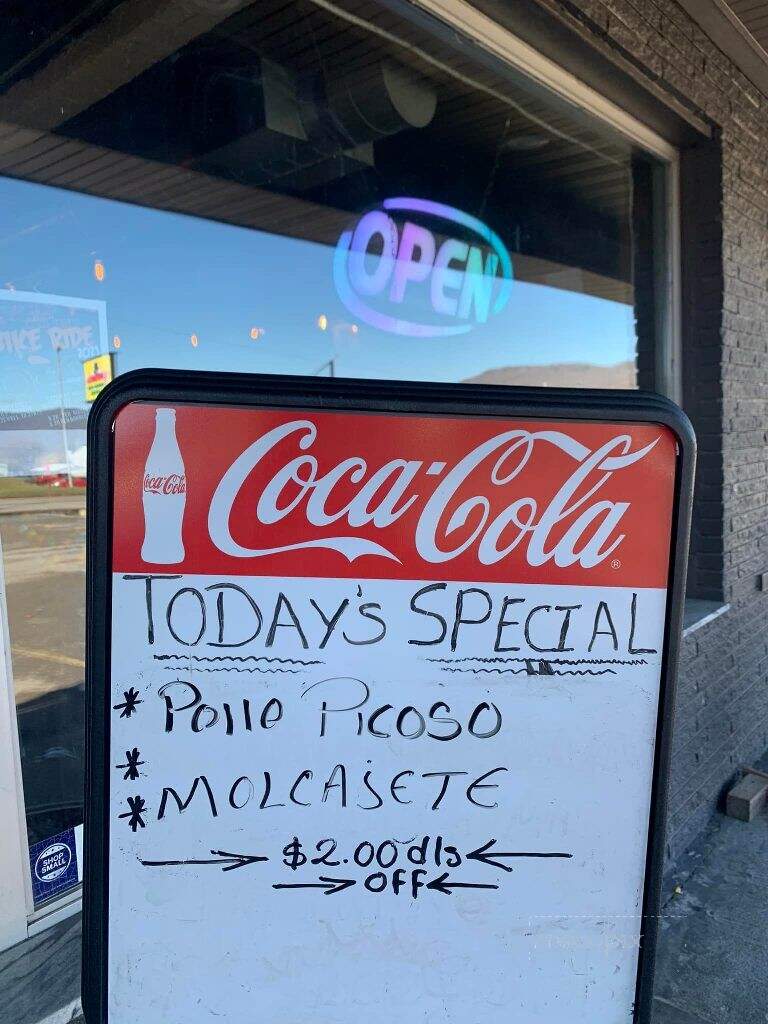 OPEN
RIDE
2021
Coca-Cola
Coca-Cola®
TODAY'S SPECIAL
* Pollo Picoso
*
* MOLCAJETE
$2.00 dls
OFF
SHOP
SMALL